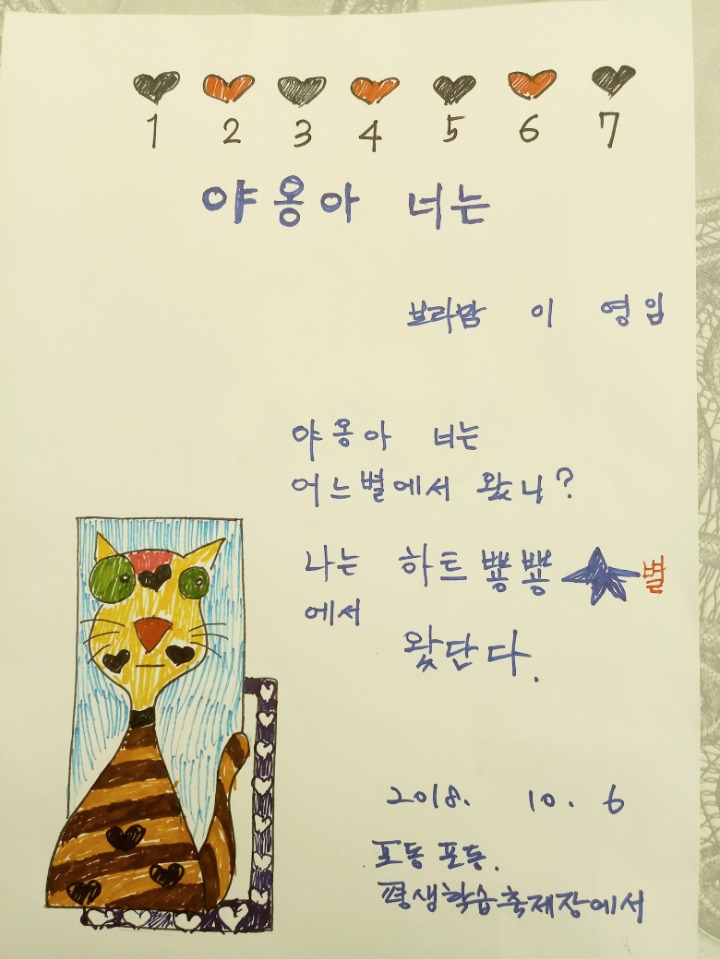 1 2 3 4 5 6 7
야옹아 너는
보라맘 이 영임
야옹아 너는
어느별에서 왔니?
나는 하트 뿅뿅 별
에서
왔단다.
2018. 10. 6
포동 포동.
평생학습축제장에서